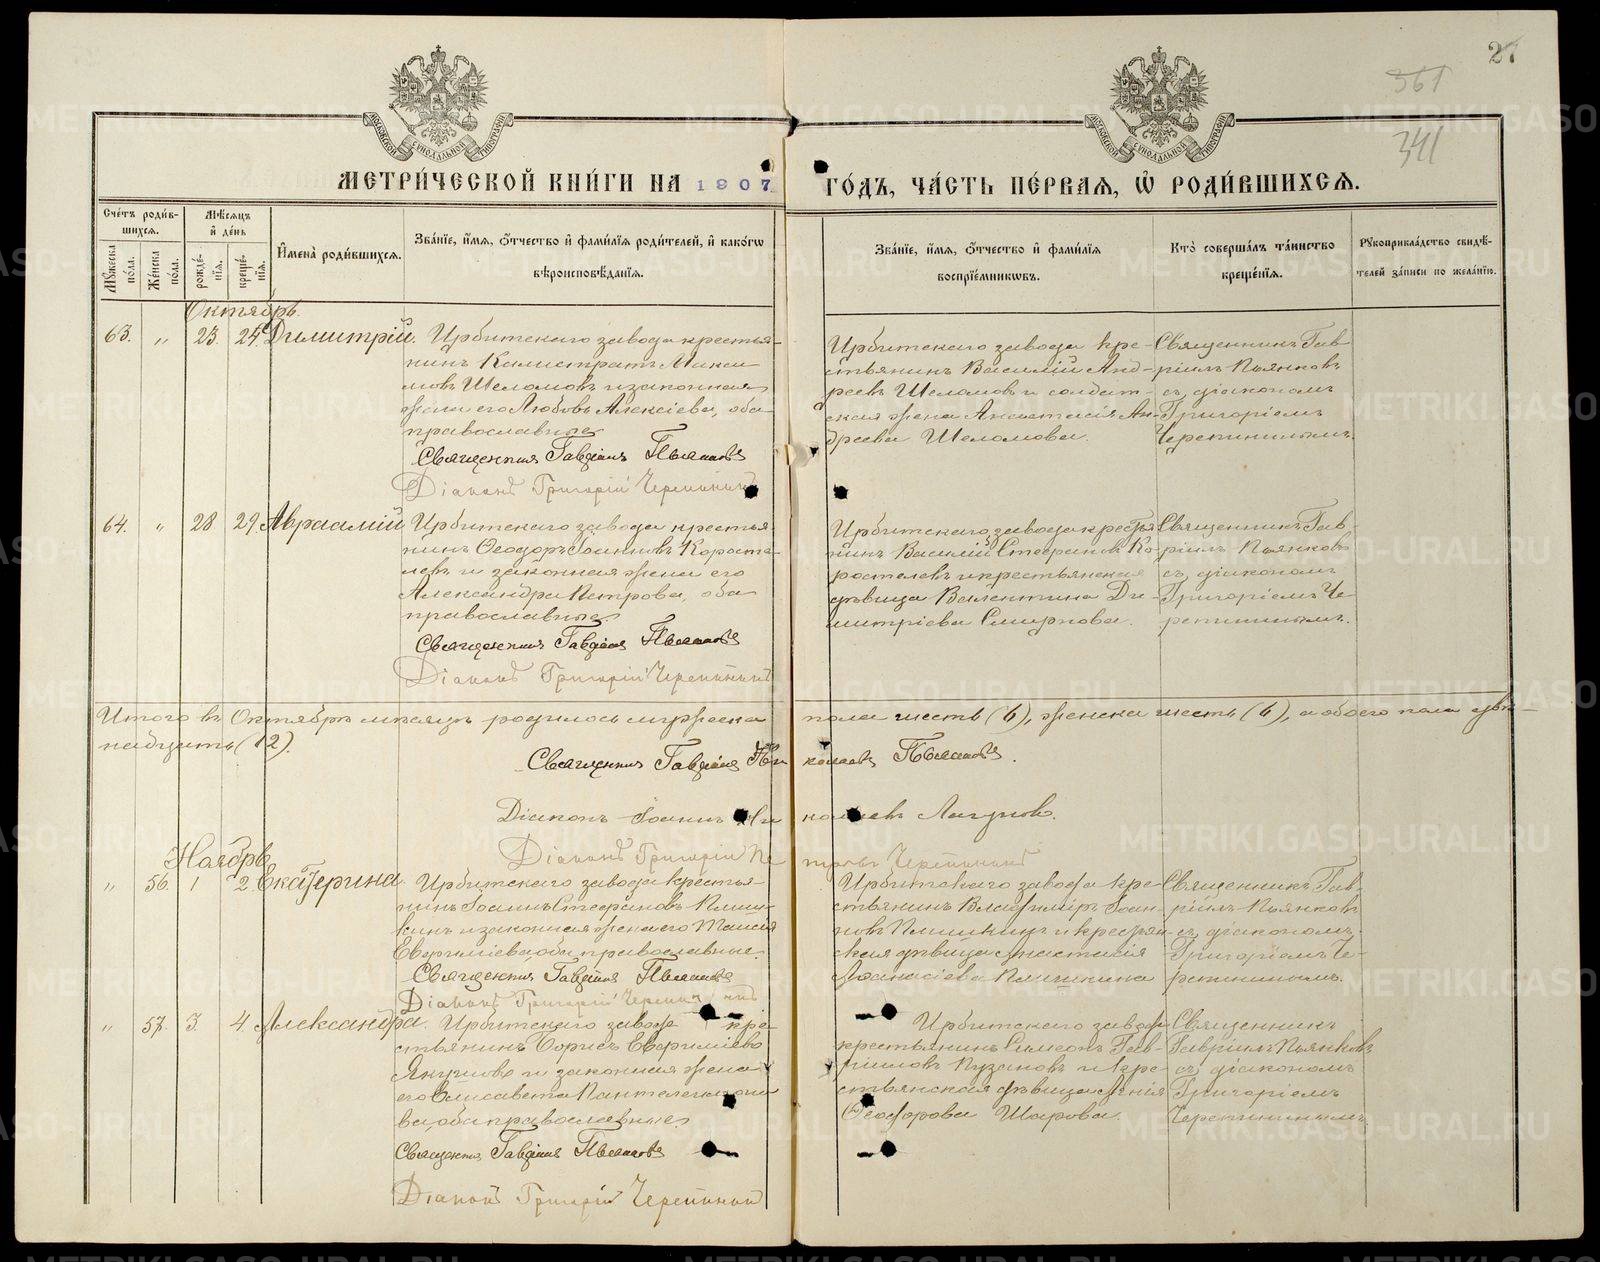 27
361
341
МОСКОВСКОЙ СѴНОДАЛЬНОЙ ТИПОГРАФІИ
МОСКОВСКОЙ СѴНОДАЛЬНОЙ ТИПОГРАФІИ
МЕТРИ́ЧЕСКОЙ КНИ́ГИ НА 1907 ГО́ДЪ, ЧА́СТЬ ПЕ́РВАѦ, Ѽ РОДИ́ВШИХСѦ.
Сче́тъ роди́в-
шихсѧ.
Мꙋ́жеска по́ла.
Же́нска по́ла.
Мѣ́сѧцъ и҆ де́нь
рожде́-
нїѧ.
креще́-
нїѧ.
И҆мена̀ роди́вшихсѧ.
Зва́нїе, и҆́мѧ, ѻ҆́тчество и҆ фами́лїѧ роди́телей, и҆ како́гѡ
вѣроисповѣ́данїѧ.
Зва́нїе, и҆́мѧ, ѻ҆́тчество и҆ фами́лїѧ
воспрїе́мникѡвъ.
Кто̀ соверша́лъ та́инство
креще́нїѧ.
Рꙋкоприкла́дство свидѣ́-
телей за́писи по жела́нїю.
Октябрь
63. " 23. 24. Димитрій.
Ирбитскаго завода крестья-
нинъ Калистратъ Макси-
мовъ Шеломовъ и законная
жена его Любовь Алексіева, оба
православные
Священникъ Гавріилъ Пьянковъ
Діаконъ Григорій Черепнинъ
Ирбитскаго завода кре-
стьянинъ Василій Анд-
реевъ Шеломовъ и солдат-
ская жена Анастасія Ан-
дреева Шеломова.
Священникъ Гав-
ріилъ Пьянковъ
съ діакономъ
Григоріемъ
Черепнинымъ.
64. " 28 29. Авраамій
Ирбитскаго завода крестья-
нинъ Ѳеодоръ Іоанновъ Короста-
левъ и законная жена его
Александра Петрова, оба
православные
Священникъ Гавріилъ Пьянковъ
Діаконъ Григорій Черепнинъ
Ирбитскаго завода крестья-
нинъ Василій Стефановъ Ко-
ростелевъ и крестьянская
дѣвица Валентина Ди-
митріева Смирнова.
Священникъ Гав-
ріилъ Пьянковъ
съ діакономъ
Григоріемъ Че-
репнинымъ.
Итого въ Октябрѣ мѣсяцѣ родилось мужеска пола шесть (6), женска шесть (6), а обоего пола две-
надцать (12).
Священникъ Гавріилъ Николаевъ Пьянковъ.
Діаконъ Іоаннъ Николаевъ Лагуновъ.
Діаконъ Григорій Петровъ Черепнинъ
Ноябрь
" 56. 1 2. Екатерина.
Ирбитскаго завода крестья-
нинъ Іоаннъ Стефановъ Плиш-
кинъ и законная жена его Таисія
Евфиміева, оба православные.
Священникъ Гавріилъ Пьянковъ
Діаконъ Григорій Черепнинъ
Ирбитскаго завода кре-
стьянинъ Владиміръ Іоан-
новъ Плишкинъ и крестьян-
ская дѣвица Анастасія
Аѳанасіева Плишкина
Священникъ Гав-
ріилъ Пьянковъ
съ діакономъ
Григоріемъ Че-
репнинымъ.
" 57. 3. 4. Александра.
Ирбитскаго завода кре-
стьянинъ Борисъ Евфиміевъ
Якушовъ и законная жена
его Елисавета Пантелеимоно-
ва, оба православные
Священникъ Гавріилъ Пьянковъ
Діаконъ Григорій Черепнинъ
Ирбитскаго завода
крестьянинъ Симеонъ Гав-
ріиловъ Пузановъ и кре-
стьянская дѣвица Агнія
Ѳеодорова Шарова.
Священникъ
Гавріилъ Пьянковъ
съ діакономъ
Григоріемъ
Черепнинымъ.
METRIKI.GASO-URAL.RU